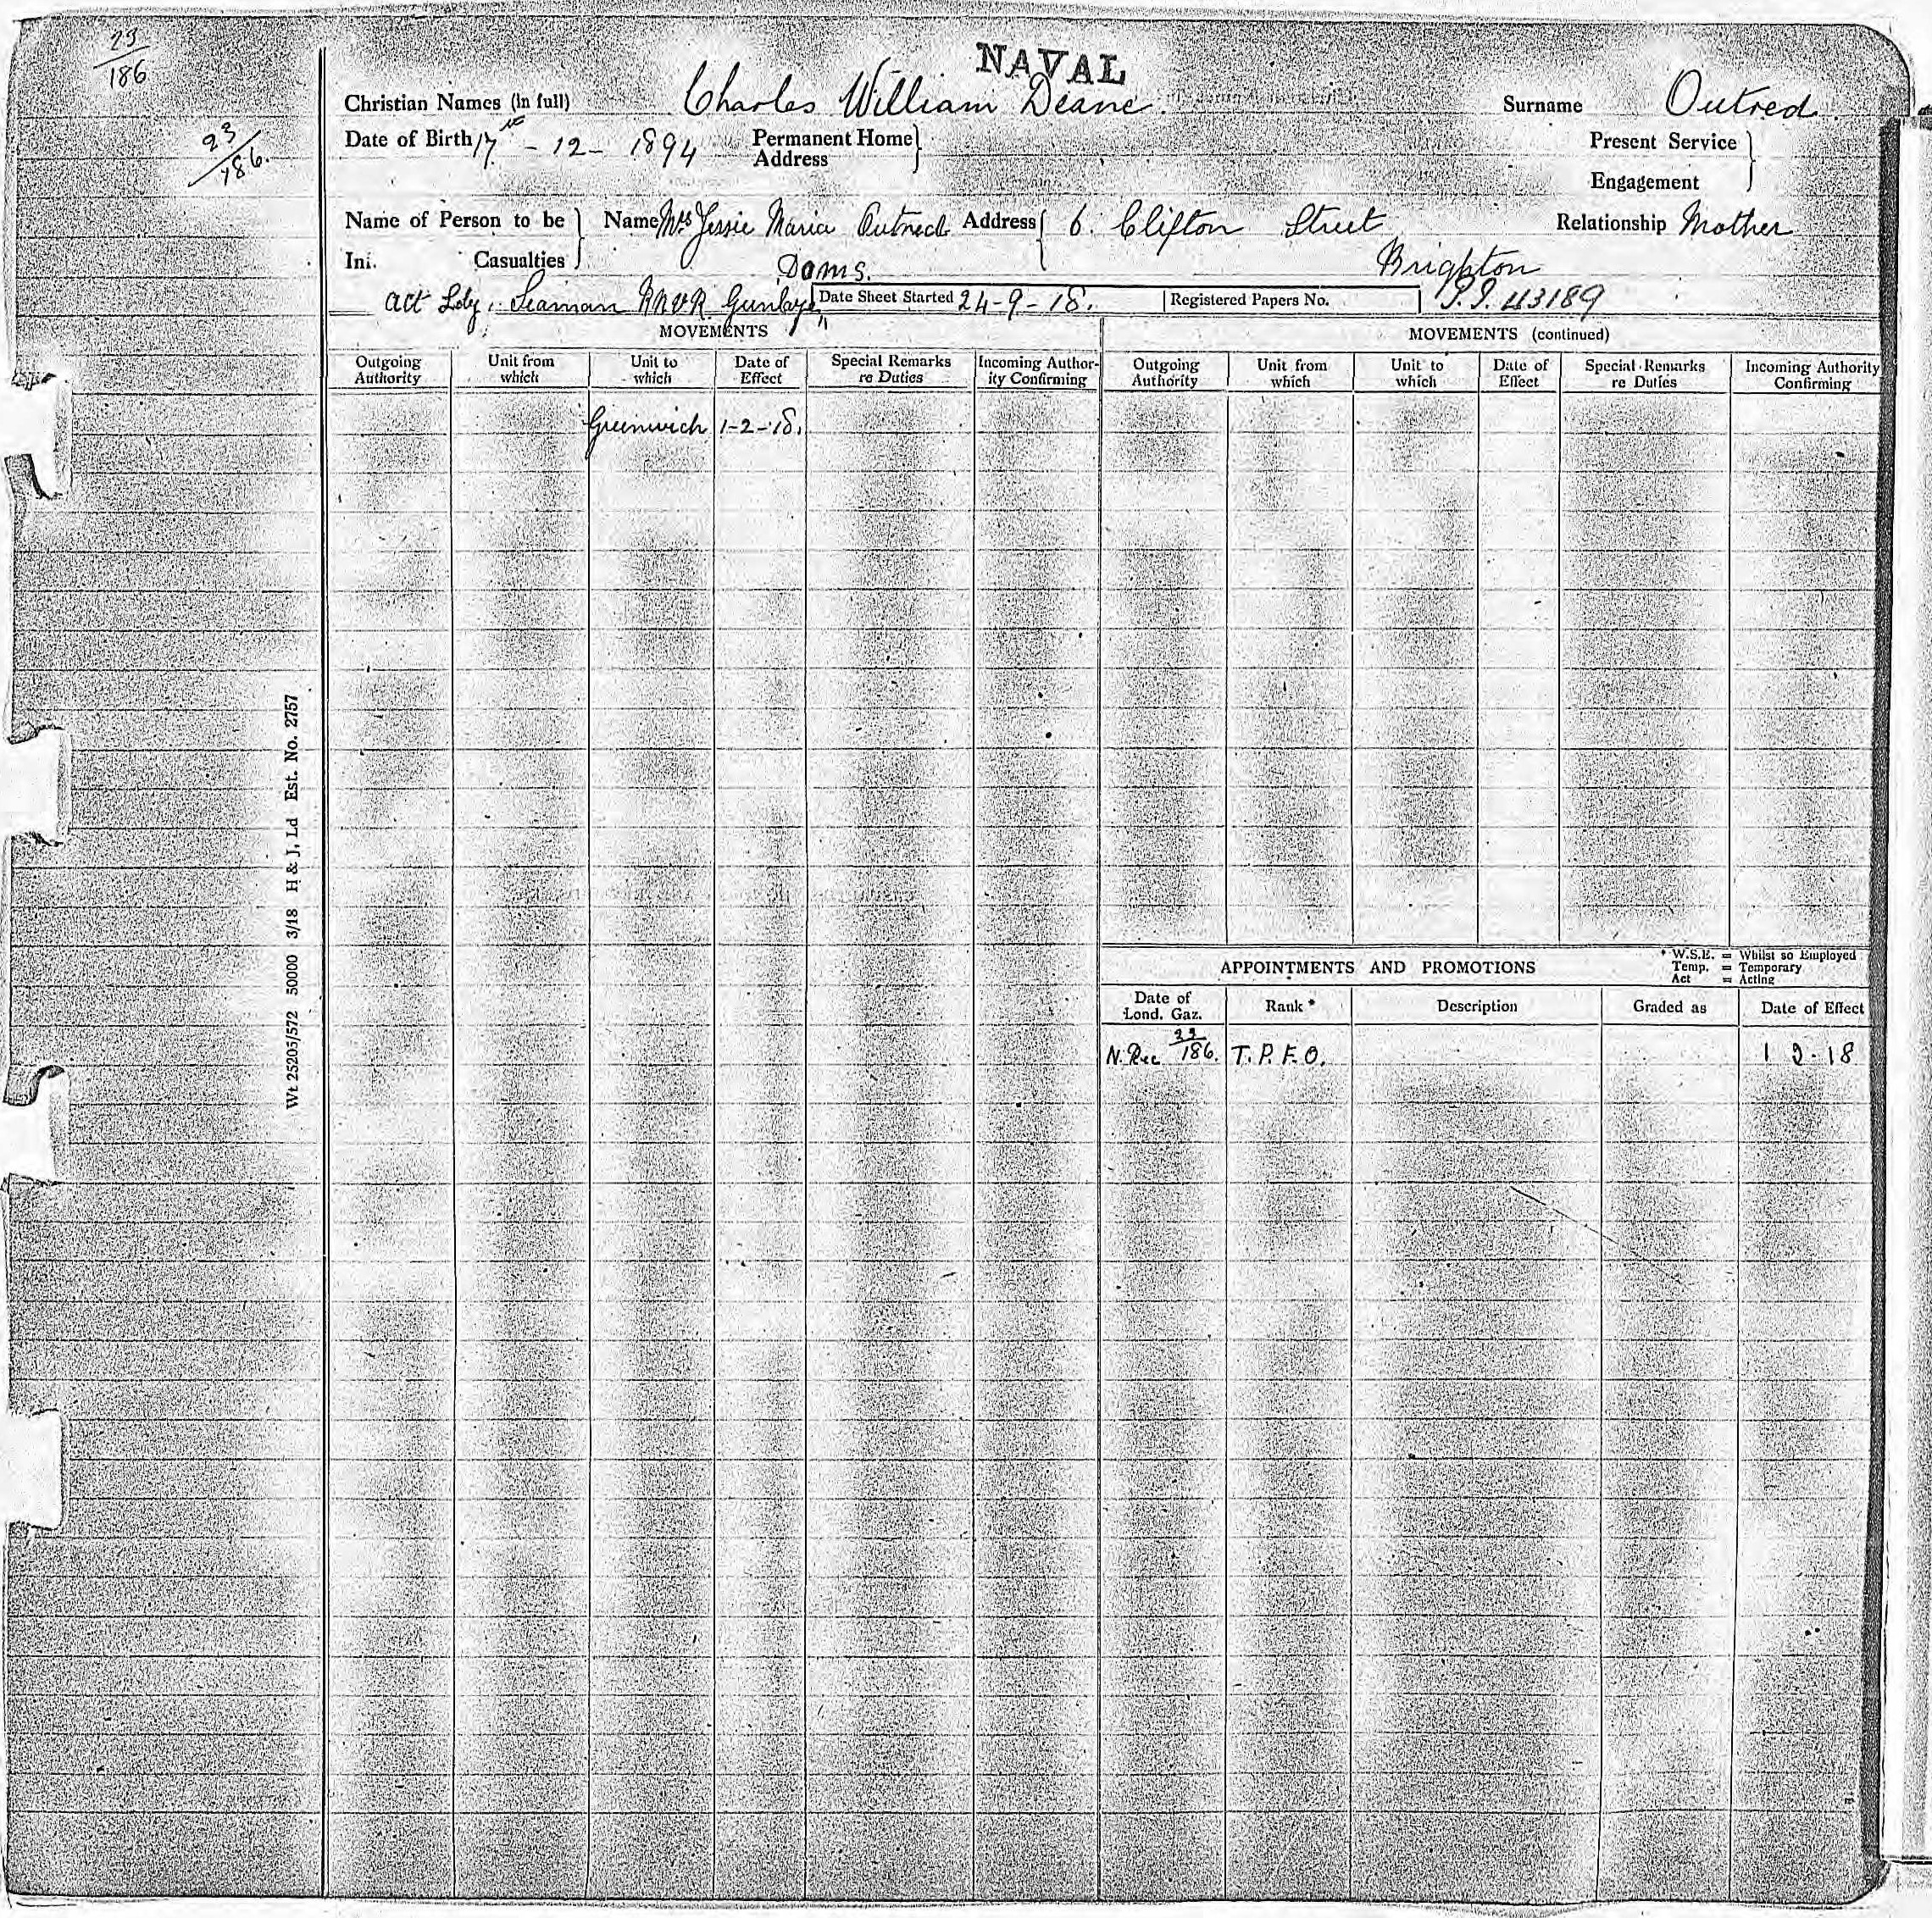 23
186
23
186.
NAVAL
Christian Names (In full) Charles William Deane. Surname Outred.
Date of Birth 17th - 12 - 1894 Permanent Home Address } Present Service }
Engagement
Name of Person to be } Name Mrs Jessie Maria Outred Address { 6. Clifton Street Relationship Mother
Inf. Casualties } Brighton
act Ldg. Seaman RNVR Date Sheet Started 24-9-18. Registered Papers No. 43189
MOVEMENTS MOVEMENTS (continued)
Outgoing Authority Unit from which Unit to which Date of Effect Special Remarks re Duties Incoming Authority Confirming Outgoing Authority Unit from which Unit to which Date of Effect Special Remarks re Duties Incoming Authority Confirming
Greenwich 1-2-18.
Wt 25205/572 50000 3/18 H & J, Ld Est. No. 2757
APPOINTMENTS AND PROMOTIONS
* W.S.E. = Whilst so Employed
Temp. = Temporary
Act = Acting
Date of Lond. Gaz. Rank * Description Graded as Date of Effect
N. Rec 23/186. T.P.F.O. 1 2-18